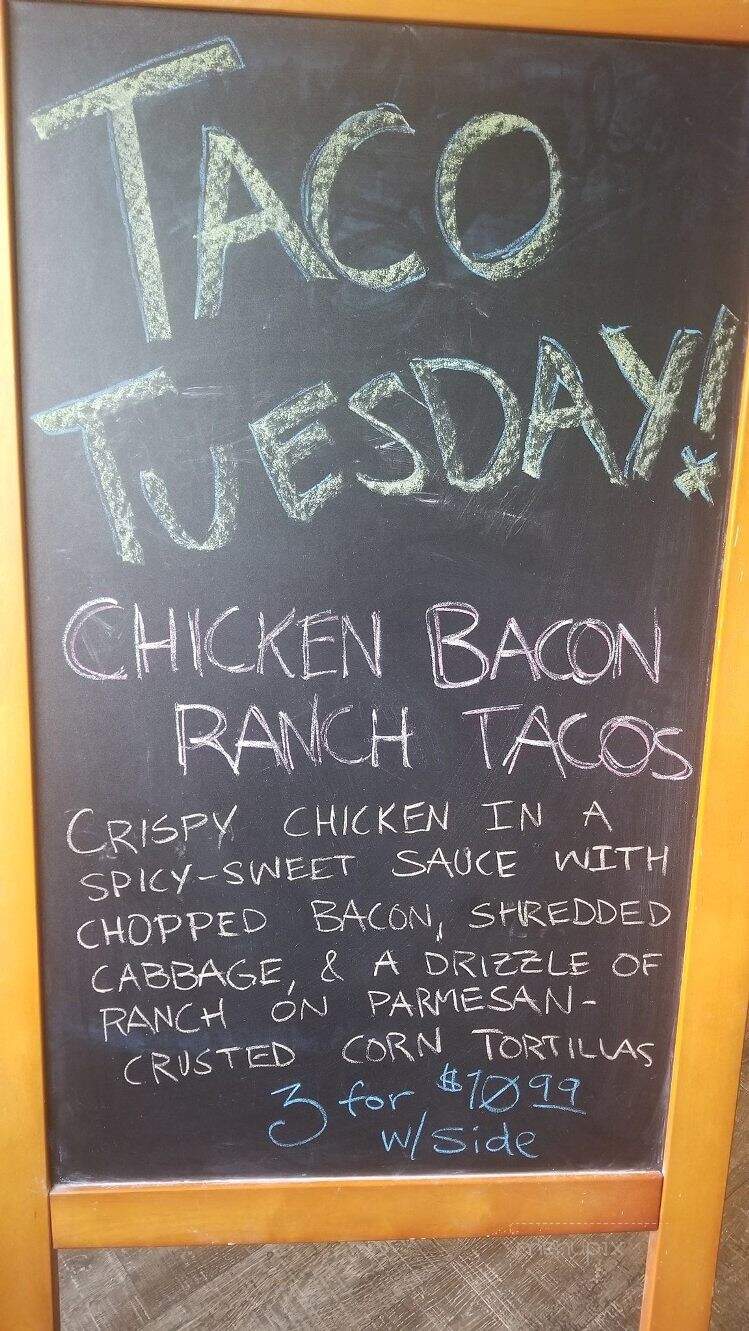 TACO
TUESDAY!
CHICKEN BACON
RANCH TACOS
CRISPY CHICKEN IN A
SPICY-SWEET SAUCE WITH
CHOPPED BACON, SHREDDED
CABBAGE, & A DRIZZLE OF
RANCH ON PARMESAN-
CRUSTED CORN TORTILLAS
3 for $10.99
w/side
menupix